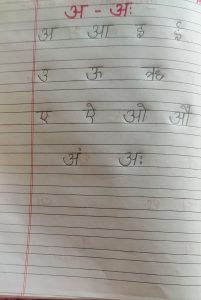 अ - अः
अ आ इ ई
उ ऊ ऋ
ए ऐ ओ औ
अं अः